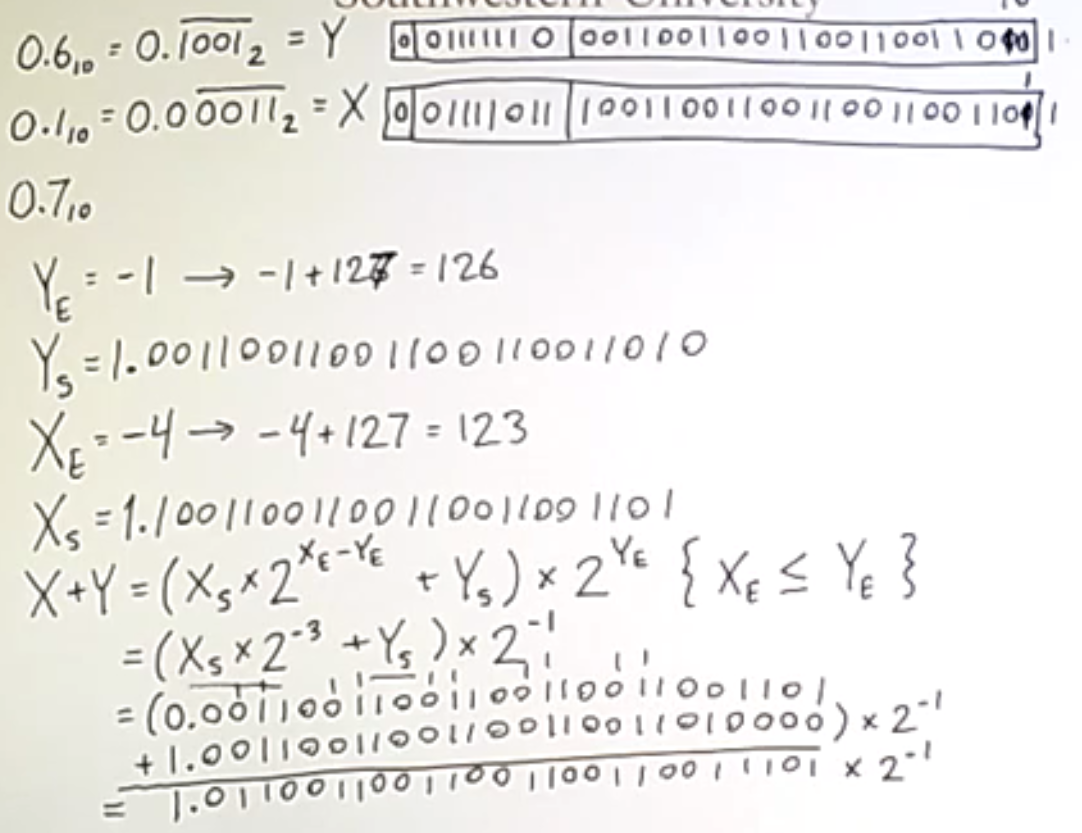 Southwestern University
0.6₁₀ = 0.1̅0̅0̅1̅₂ = Y 0 01111110 00110011001100110011010 1
0.1₁₀ = 0.00̅0̅1̅1̅₂ = X 0 01111011 10011001100110011001101 1
0.7₁₀
Y_E = -1 → -1+127 = 126
Y_S = 1.00110011001100110011010
X_E = -4 → -4+127 = 123
X_S = 1.10011001100110011001101
X+Y = (X_S × 2^(X_E-Y_E) + Y_S) × 2^(Y_E) { X_E ≤ Y_E }
= (X_S × 2⁻³ + Y_S) × 2⁻¹
= (0.00110011001100110011001101
+ 1.00110011001100110011010000) × 2⁻¹
= 1.01100110011001100110011101 × 2⁻¹